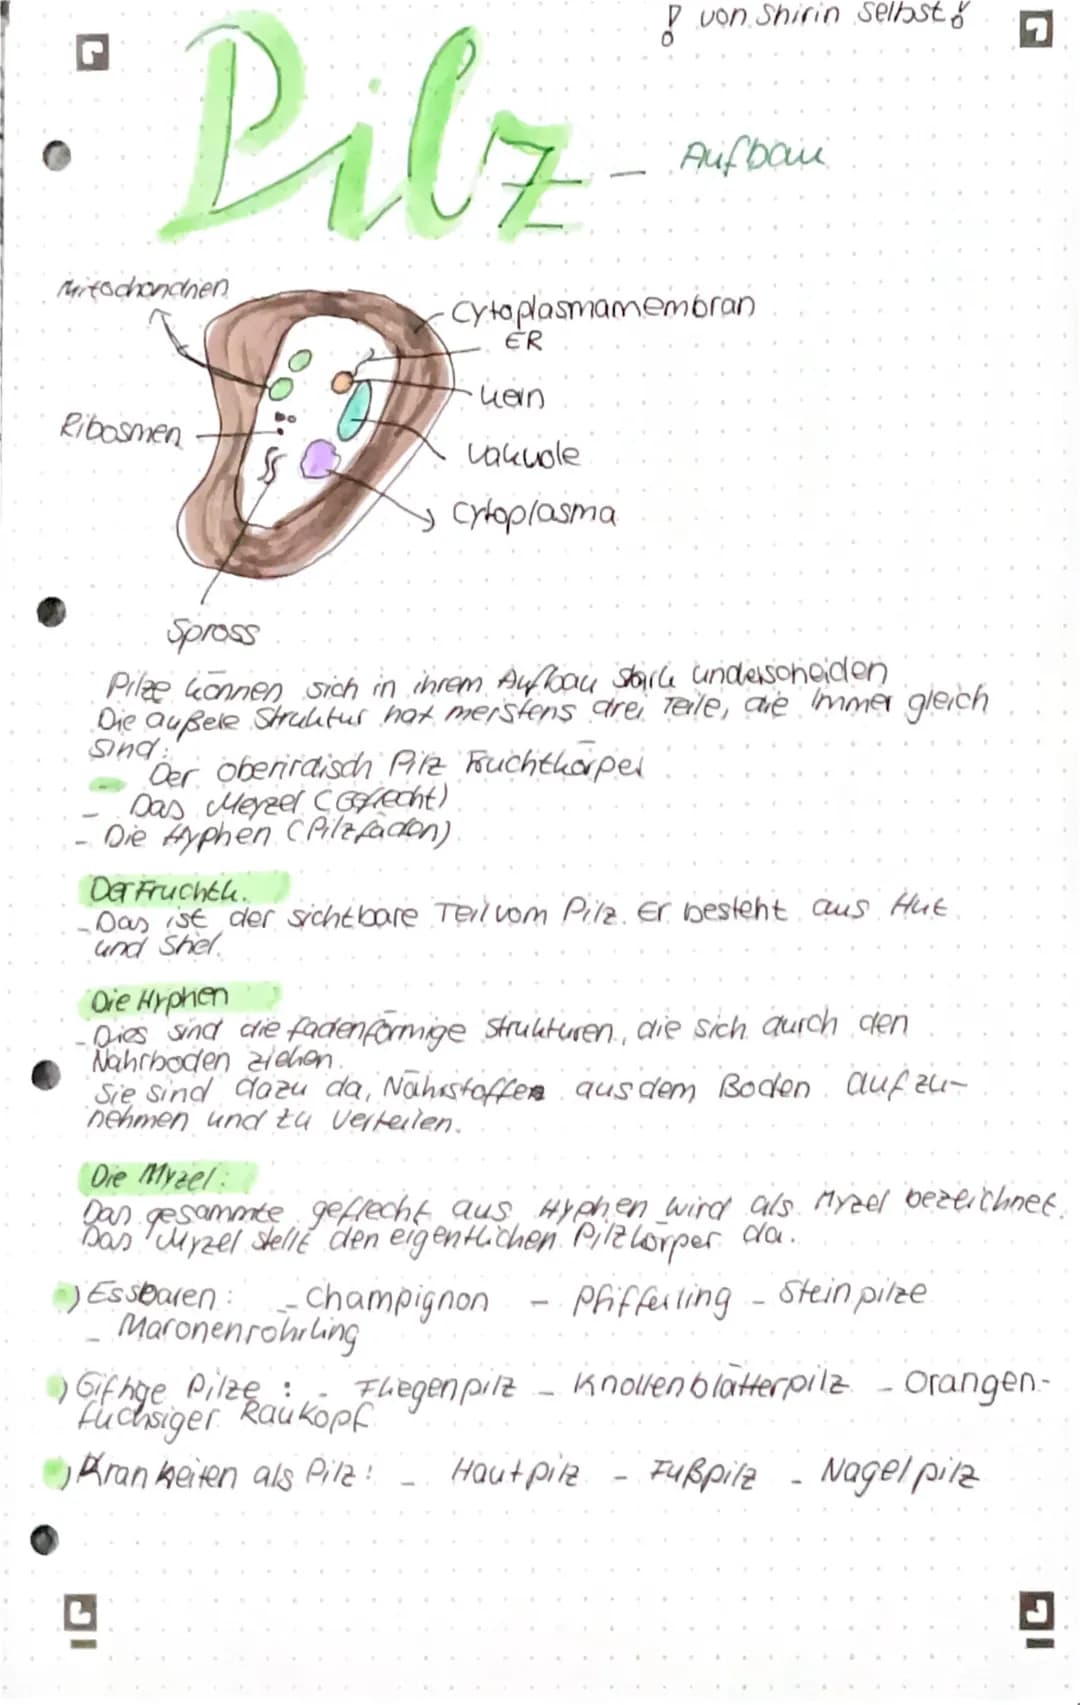 ! von Shirin Selbst!
Pilz - Aufbau
Mitochondrien
Cytoplasmamembran
ER
Kern
Ribosmen
Vakuole
Cytoplasma
Spross
Pilze können sich in ihrem Aufbau stark underscheiden
Die außere Struktur hat meistens drei Teile, die immer gleich
sind:
- Der oberirdisch Pilz Fruchtkörper
- Das Meyzel (Geflecht)
- Die Hyphen (Pilzfäden)
Der Fruchtk.
- Das ist der sichtbare Teil vom Pilz. Er besteht aus Hut
und Stiel.
Die Hyphen
- Dies sind die fadenförmige Strukturen, die sich durch den
Nährboden ziehen.
Sie sind dazu da, Nährstoffe aus dem Boden aufzu-
nehmen und zu verteilen.
Die Myzel:
Das gesammte geflecht aus Hyphen wird als Myzel bezeichnet.
Das Myzel stellt den eigentlichen Pilzkörper da.
) Essbaren: - Champignon - Pfifferling - Steinpilze
- Maronenröhrling
) Giftige Pilze: - Fliegenpilz - Knollenblätterpilz - Orangen-
fuchsiger Raukopf
) Krankeiten als Pilz: - Hautpilz - Fußpilz - Nagelpilz